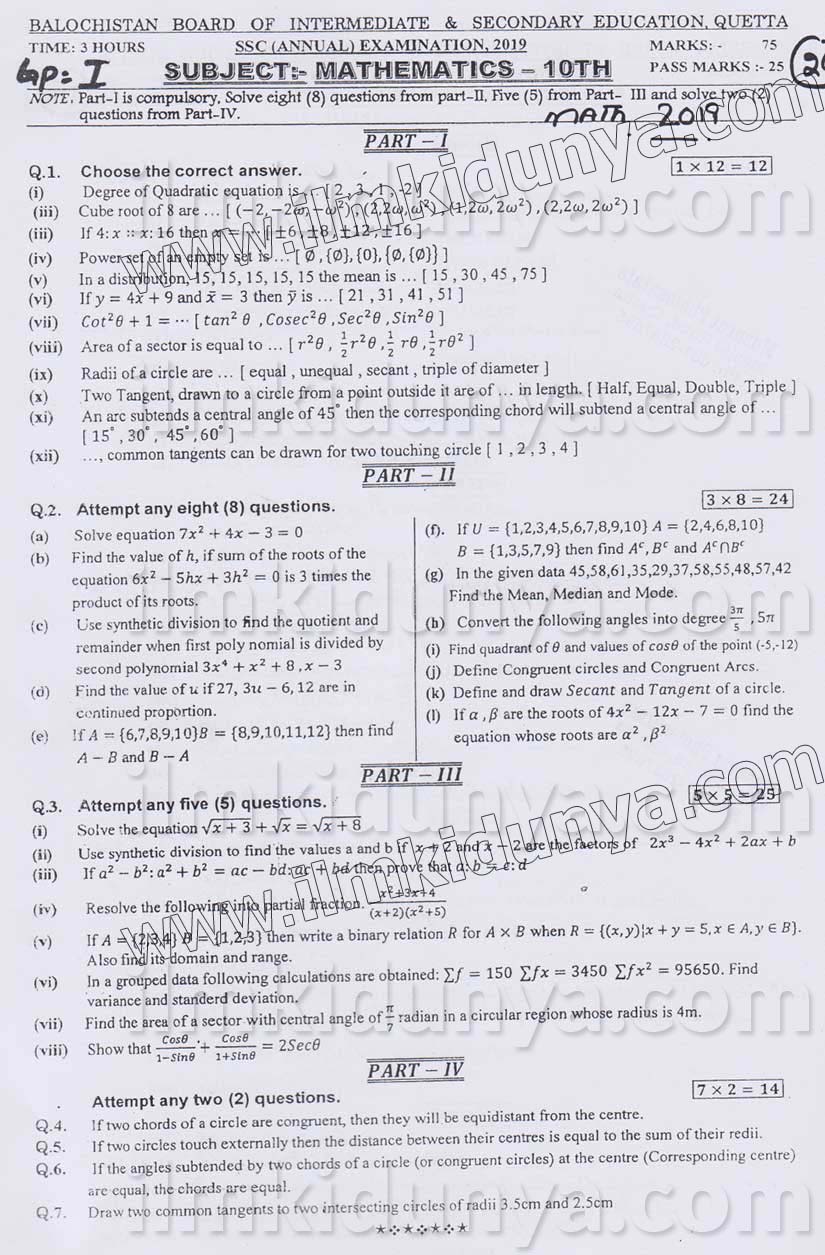 BALOCHISTAN BOARD OF INTERMEDIATE & SECONDARY EDUCATION, QUETTA
TIME: 3 HOURS SSC (ANNUAL) EXAMINATION, 2019 MARKS: - 75
Gp: I SUBJECT:- MATHEMATICS – 10TH PASS MARKS :- 25
NOTE. Part-I is compulsory, Solve eight (8) questions from part-II, Five (5) from Part- III and solve two (2)
questions from Part-IV. MATH 2019
PART – I
Q.1. Choose the correct answer. 1 × 12 = 12
(i) Degree of Quadratic equation is … [ 2 , 3 , 1 , -2 ]
(iii) Cube root of 8 are … [ (−2, −2ω, −ω²) , (2,2ω, ω²) , (1,2ω, 2ω²) , (2,2ω, 2ω²) ]
(iii) If 4: x :: x: 16 then x = ⋯ [ ±6 , ±8 , ±12 , ±16 ]
(iv) Power set of an empty set is … [ ∅ , {∅}, {0}, {∅, {∅}} ]
(v) In a distribution, 15, 15, 15, 15, 15 the mean is … [ 15 , 30 , 45 , 75 ]
(vi) If y = 4x + 9 and x̄ = 3 then ȳ is … [ 21 , 31 , 41 , 51 ]
(vii) Cot²θ + 1 = ⋯ [ tan² θ , Cosec²θ , Sec²θ , Sin²θ ]
(viii) Area of a sector is equal to … [ r²θ , 1/2 r²θ , 1/2 rθ , 1/2 rθ² ]
(ix) Radii of a circle are … [ equal , unequal , secant , triple of diameter ]
(x) Two Tangent, drawn to a circle from a point outside it are of … in length. [ Half, Equal, Double, Triple ]
(xi) An arc subtends a central angle of 45° then the corresponding chord will subtend a central angle of …
[ 15° , 30° , 45° , 60° ]
(xii) …, common tangents can be drawn for two touching circle [ 1 , 2 , 3 , 4 ]
PART – II
Q.2. Attempt any eight (8) questions. 3 × 8 = 24
(a) Solve equation 7x² + 4x − 3 = 0
(b) Find the value of h, if sum of the roots of the
equation 6x² − 5hx + 3h² = 0 is 3 times the
product of its roots.
(c) Use synthetic division to find the quotient and
remainder when first poly nomial is divided by
second polynomial 3x⁴ + x² + 8 , x − 3
(d) Find the value of u if 27, 3u − 6, 12 are in
continued proportion.
(e) If A = {6,7,8,9,10}B = {8,9,10,11,12} then find
A − B and B − A
(f). If U = {1,2,3,4,5,6,7,8,9,10} A = {2,4,6,8,10}
B = {1,3,5,7,9} then find Aᶜ, Bᶜ and Aᶜ∩Bᶜ
(g) In the given data 45,58,61,35,29,37,58,55,48,57,42
Find the Mean, Median and Mode.
(h) Convert the following angles into degree 3π/5 , 5π
(i) Find quadrant of θ and values of cosθ of the point (-5,-12)
(j) Define Congruent circles and Congruent Arcs.
(k) Define and draw Secant and Tangent of a circle.
(l) If α , β are the roots of 4x² − 12x − 7 = 0 find the
equation whose roots are α² , β²
PART – III
Q.3. Attempt any five (5) questions. 5 × 5 = 25
(i) Solve the equation √(x + 3) + √x = √(x + 8)
(ii) Use synthetic division to find the values a and b if x + 2 and x − 2 are the factors of 2x³ − 4x² + 2ax + b
(iii) If a² − b²: a² + b² = ac − bd: ac + bd then prove that a: b = c: d
(iv) Resolve the following into partial fraction. (x²+3x+4)/((x+2)(x²+5))
(v) If A = {2,3,4} B = {1,2,3} then write a binary relation R for A × B when R = {(x, y)|x + y = 5, x ∈ A, y ∈ B}.
Also find its domain and range.
(vi) In a grouped data following calculations are obtained: ∑f = 150 ∑fx = 3450 ∑fx² = 95650. Find
variance and standerd deviation.
(vii) Find the area of a sector with central angle of π/7 radian in a circular region whose radius is 4m.
(viii) Show that Cosθ/(1−Sinθ) + Cosθ/(1+Sinθ) = 2Secθ
PART – IV
Attempt any two (2) questions. 7 × 2 = 14
Q.4. If two chords of a circle are congruent, then they will be equidistant from the centre.
Q.5. If two circles touch externally then the distance between their centres is equal to the sum of their redii.
Q.6. If the angles subtended by two chords of a circle (or congruent circles) at the centre (Corresponding centre)
are equal, the chords are equal.
Q.7. Draw two common tangents to two intersecting circles of radii 3.5cm and 2.5cm
www.ilmkidunya.com
www.ilmkidunya.com
ilmkidunya.com
ilmkidunya.com
ilmkidunya.com
ilmkidunya.com
ilmkidunya.com
ilmkidunya.com